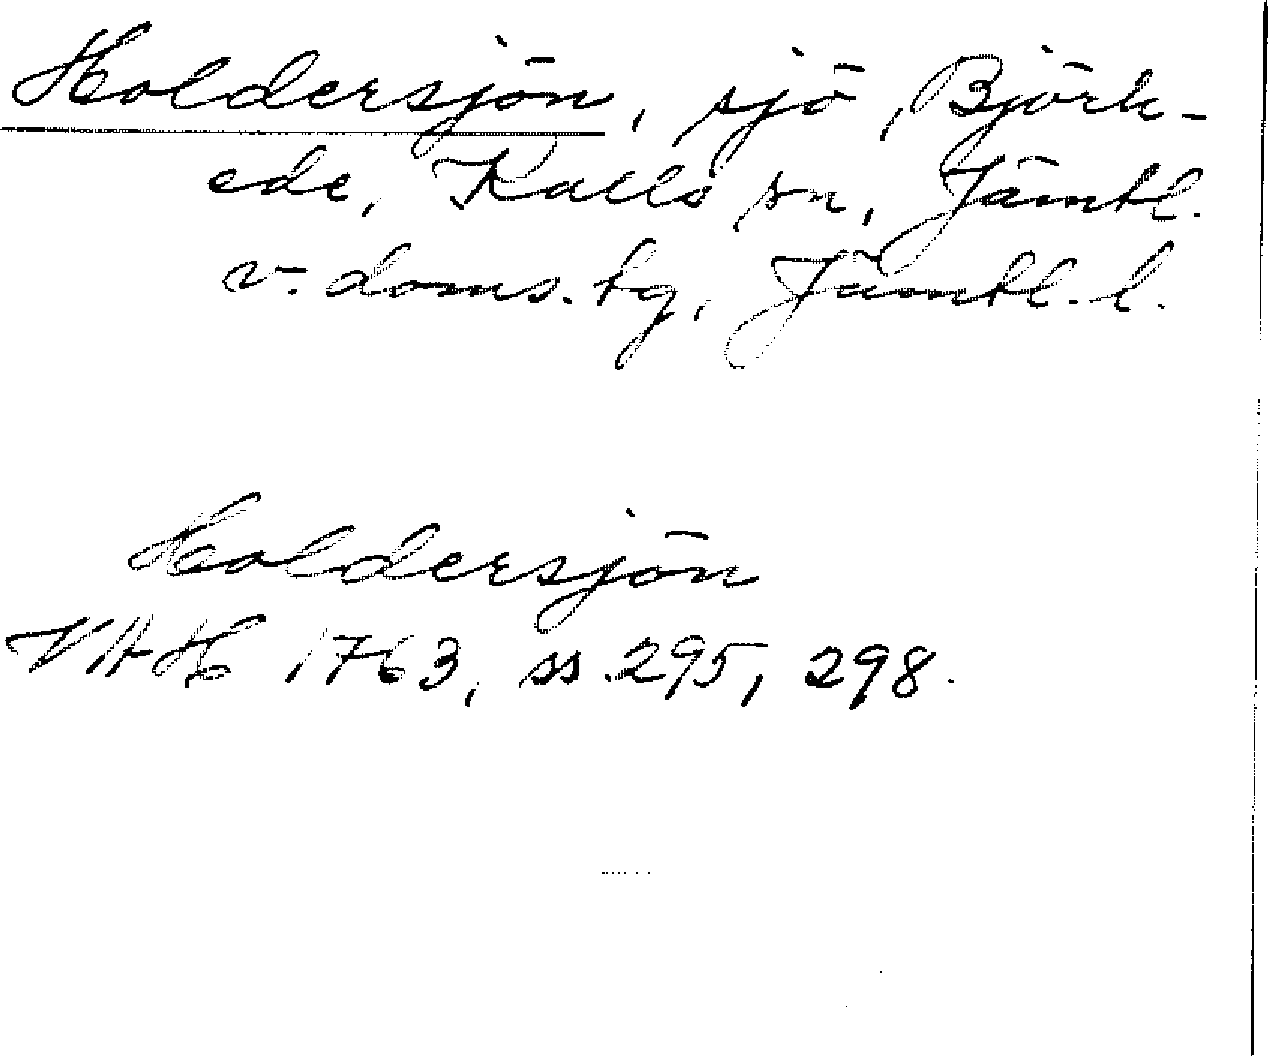 Holdersjön, sjö, Björk-
ede, Kalls sn, Jämtl.
v. doms. tg, Jämtl. l.
Holdersjön
VAH 1763, ss. 295, 298.